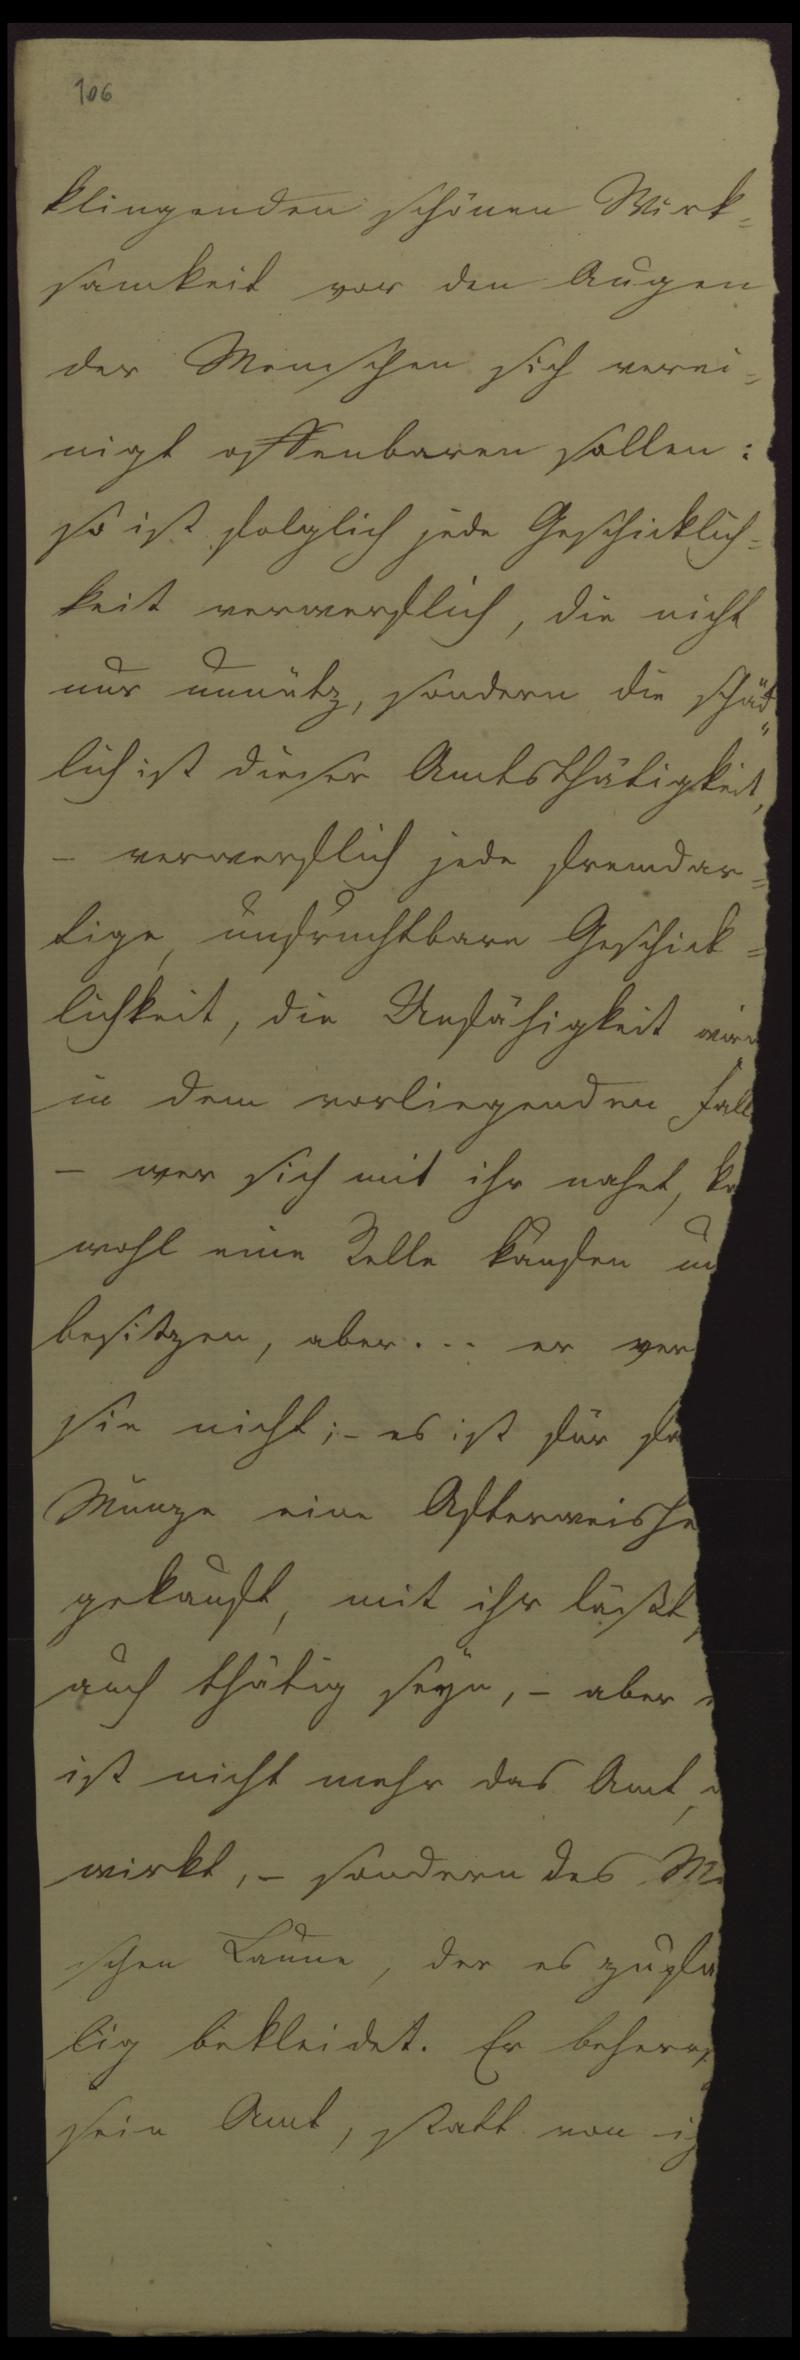 106
klingenden schönen Wirk=
samkeit vor den Augen
der Menschen sich verei=
nigt offenbaren sollen:
so ist folglich jede Geschicklich=
keit verwerflich, die nicht
nur unnütz, sondern die schäd=
lich ist dieser Amtsthätigkeit,
– verwerflich jede fremdar=
tige, unfruchtbare Geschick=
lichkeit, die Unfähigkeit wird
in dem vorliegenden Fall
– wer sich mit ihr nahet, k
wohl eine Stelle kaufen u
besitzen, aber... er ver
sie nicht; – es ist für
Münze eine Afterweishe
gekauft, mit ihr läßt
auch thätig seyn, – aber
ist nicht mehr das Amt,
wirkt, – sondern des M
schen Laune, der es zufä
lig bekleidet. Er beherrs
sein Amt, statt von ih